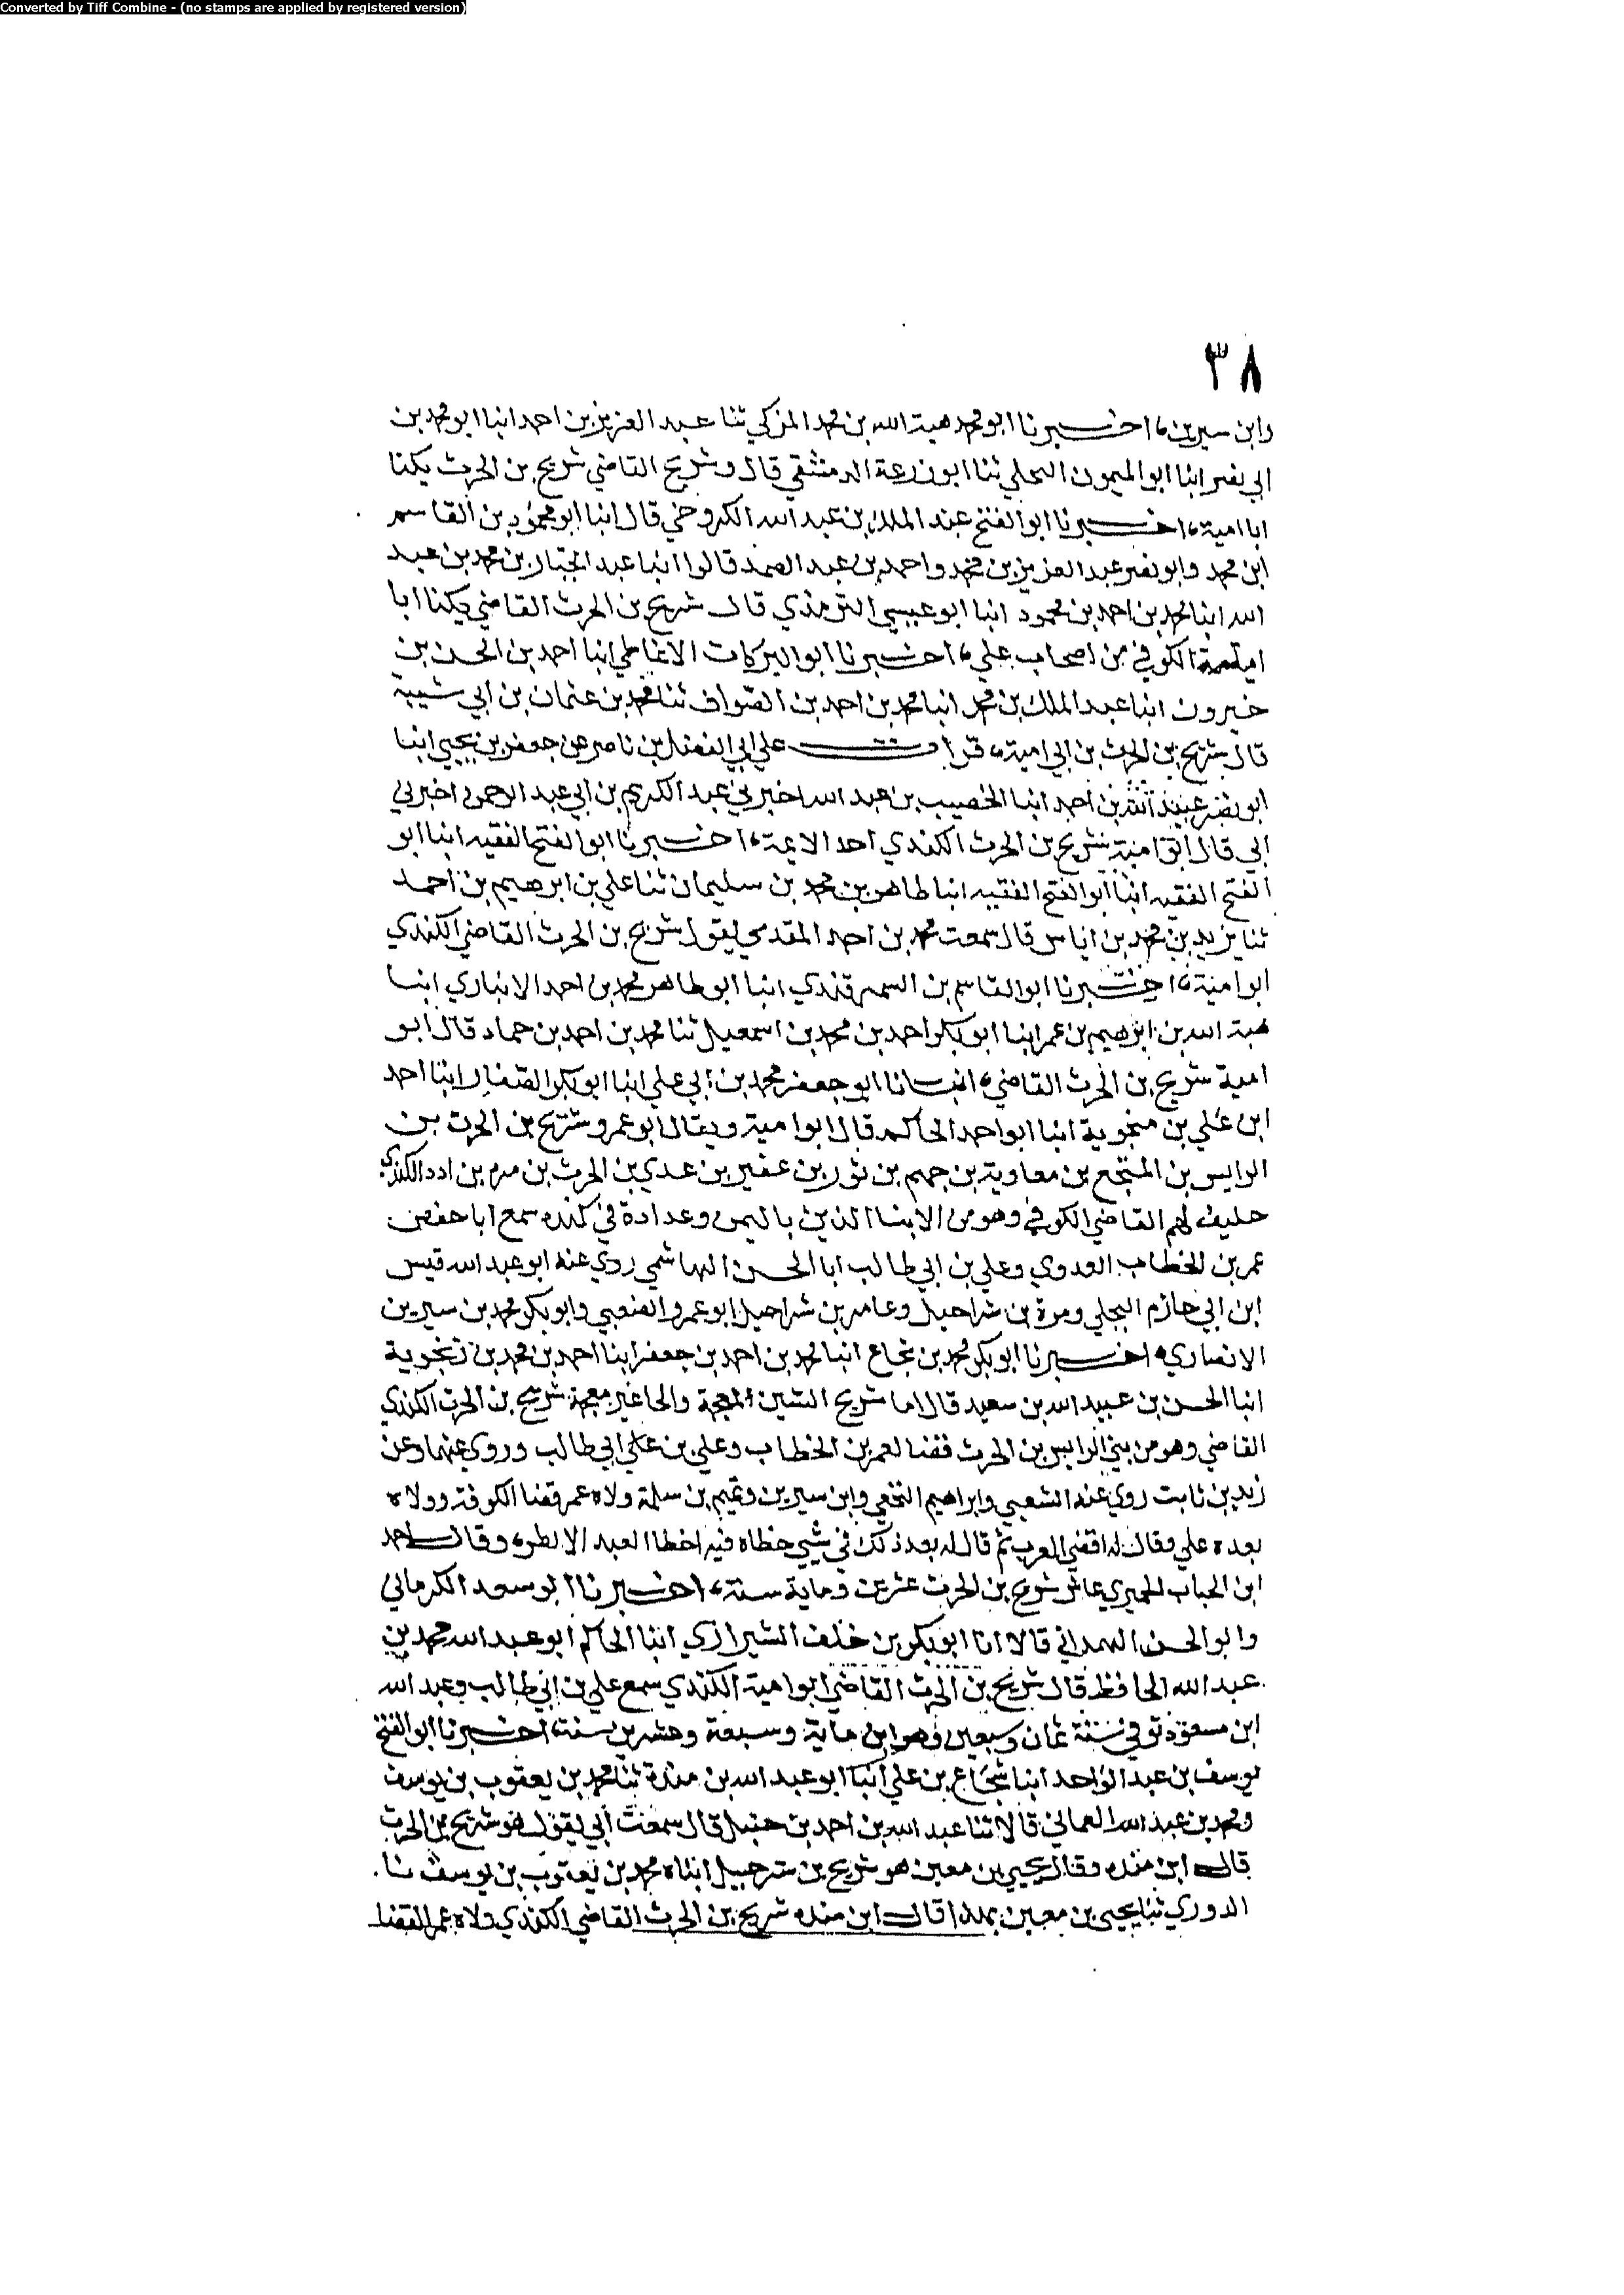 Converted by Tiff Combine - (no stamps are applied by registered version)
٣٨
وابن سيرين، اخبرنا ابو محمد هبة الله بن محمد المزكي ثنا عبد العزيز بن احمد انبا ابو محمد بن
ابي نصر انبا ابو الميمون البجلي ثنا ابو زرعة الدمشقي قال وشريح القاضي شريح بن الحرث يكنا
ابا امية، اخبرنا ابو الفتح عبد الملك بن عبد الله الكروخي قال انبا ابو محمود بن القاسم
ابن محمد وابو نصر عبد العزيز بن محمد واحمد بن عبد الصمد قالوا انبا عبد الجبار بن محمد بن عبد
الله انبا محمد بن احمد بن محمود انبا ابو عيسي الترمذي قال شريح بن الحرث القاضي يكنا ابا
امية الكوفي من اصحاب علي، اخبرنا ابو البركات الانماطي انبا احمد بن الحسن بن
خيرون انبا عبد الملك بن محمد انبا محمد بن احمد بن الصواف ثنا محمد بن عثمان بن ابي شيبة
قال شريح بن الحرث بن ابي امية، قرات علي ابي الفضل بن ناصر عن جعفر بن يحيي انبا
ابو نصر عبيد الله بن احمد انبا الخصيب بن عبد الله اخبرني عبد الكريم بن ابي عبد الرحمن اخبرني
ابي قال ابو امية شريح بن الحرث الكندي احد الايمة، اخبرنا ابو الفتح الفقيه انبا ابو
الفتح الفقيه انبا ابو الفتح الفقيه انبا طاهر بن محمد بن سليمان ثنا علي بن ابرهيم بن احمد
ثنا يزيد بن محمد بن اياس قال سمعت محمد بن احمد المقدمي يقول شريح بن الحرث القاضي الكندي
ابو امية، اخبرنا ابو القاسم بن السمرقندي انبا ابو طاهر محمد بن احمد الانباري انبا
هبة الله بن ابرهيم بن عمر انبا ابو بكر احمد بن محمد بن اسمعيل ثنا محمد بن احمد بن حماد قال ابو
امية شريح بن الحرث القاضي، انبانا ابو جعفر محمد بن ابي علي انبا ابو بكر الصفار انبا احمد
ابن علي بن منجوية انبا ابو احمد الحاكم قال ابو امية ويقال ابو عمرو شريح بن الحرث بن
الرايس بن المنتجع بن معاوية بن جهم بن ثور بن عفير بن عدي بن الحرث بن مرم بن ادد الكندي
حليف لهم القاضي الكوفي وهو من الابنا الذين باليمن وعدادة في كنده سمع ابا حفص
عمر بن الخطاب العدوي وعلي بن ابي طالب ابا الحسن الهاشمي روي عنه ابو عبد الله قيس
ابن ابي حازم البجلي ومرة بن شراحيل وعامر بن شراحيل ابو عمرو الشعبي وابو بكر محمد بن سيرين
الانصاري، اخبرنا ابو بكر محمد بن شجاع انبا محمد بن احمد بن جعفر انبا احمد بن محمد بن زنجوية
انبا الحسن بن عبيد الله بن سعيد قال اما شريح الشين المعجمة والحا غير معجمة شريح بن الحرث الكندي
القاضي وهو من بني الرايس بن الحرث قضا لعمر بن الخطاب وعلي بن علي ابي طالب وروي عنهما وعن
زيد بن ثابت روي عنه الشعبي وابراهيم النخعي وابن سيرين وتميم بن سلمة ولاه عمر قضا الكوفة وولاه
بعده علي وقال له اقضي العرب ثم قال له بعد ذلك في شيي خطاه فيه اخطا العبد الابظر، وقال احمد
ابن الحباب الحميري عاش شريح بن الحرث عشرين وماية سنة، اخبرنا ابو سعد الكرماني
وابو الحسن الهمداني قالا انا ابو بكر بن خلف الشيرازي انبا الحاكم ابو عبد الله محمد بن
عبد الله الحافظ قال شريح بن الحرث القاضي ابو امية الكندي سمع علي بن ابي طالب وعبد الله
ابن مسعود توفي سنة ثمان وسبعين وهو ابن ماية وسبعة وعشرين سنة، اخبرنا ابو الفتح
يوسف بن عبد الواحد انبا شجاع بن علي انبا ابو عبد الله بن مندة ثنا محمد بن يعقوب بن يوسف
ومحمد بن عبد الله العماني قالا ثنا عبد الله بن احمد بن حنبل قال سمعت ابي يقول هو شريح بن الحرث
قال ابن منده وقال يحيي بن معين هو شريح بن شرحبيل انباه محمد بن يعقوب بن يوسف ثنا
الدوري ثنا يحيي بن معين بهذا قال ابن منده شريح بن الحرث القاضي الكندي ولاه عمر القضا